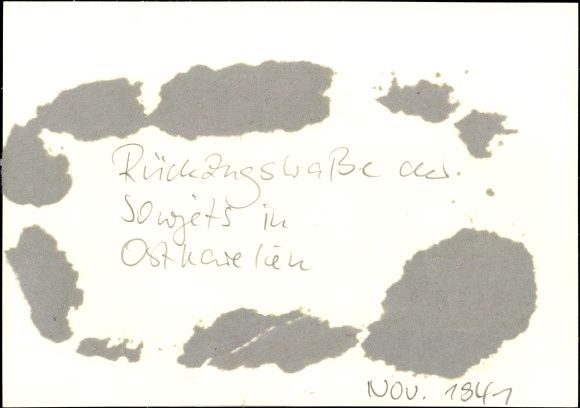 Rückzugstraße der
Sowjets in
Ostkarelien
Nov. 1841